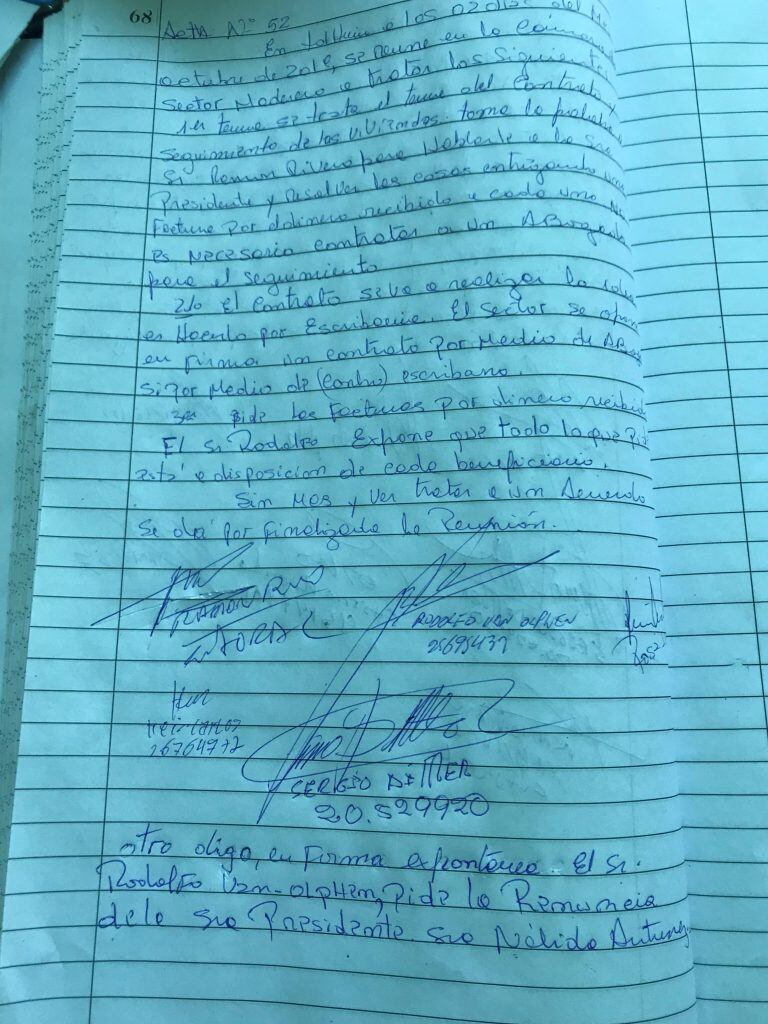 68 Acta Nº 52
En a los 02 dias del
octubre de 2018, se reune en la
Sector Maderero a tratar los siguiente
1er tema se trata el tema del Contrato y
seguimiento de las viviendas. toma la palabra
Sr. Ramon para Hablarle a la Sra
Presidente y resolver las cosas entregando una
Factura por dinero recibido a cada uno
es necesario contratar a un ABogado
para el seguimiento
2do El Contrato se va a realizar
en Hacerlo por Escribania. El Sector se
en Firma un contrato por Medio de
si por Medio de escribano.
3er Pide las Facturas por dinero recibid
El Sr Rodolfo Expone que todo lo que
está a disposicion de cada beneficiario.
Sin Mas y Ver tratar a un Acuerdo
Se da por Finalizada la Reunión.
RAMON
RODOLFO VAN OLPHEN
25695437
26764972
SERGIO DITTLER
20.529920
otro digo, en Forma expontanea El Sr.
Rodolfo Van-olpHen, Pide la Renuncia
dela Sra Presidente Sra Nélida Antunez